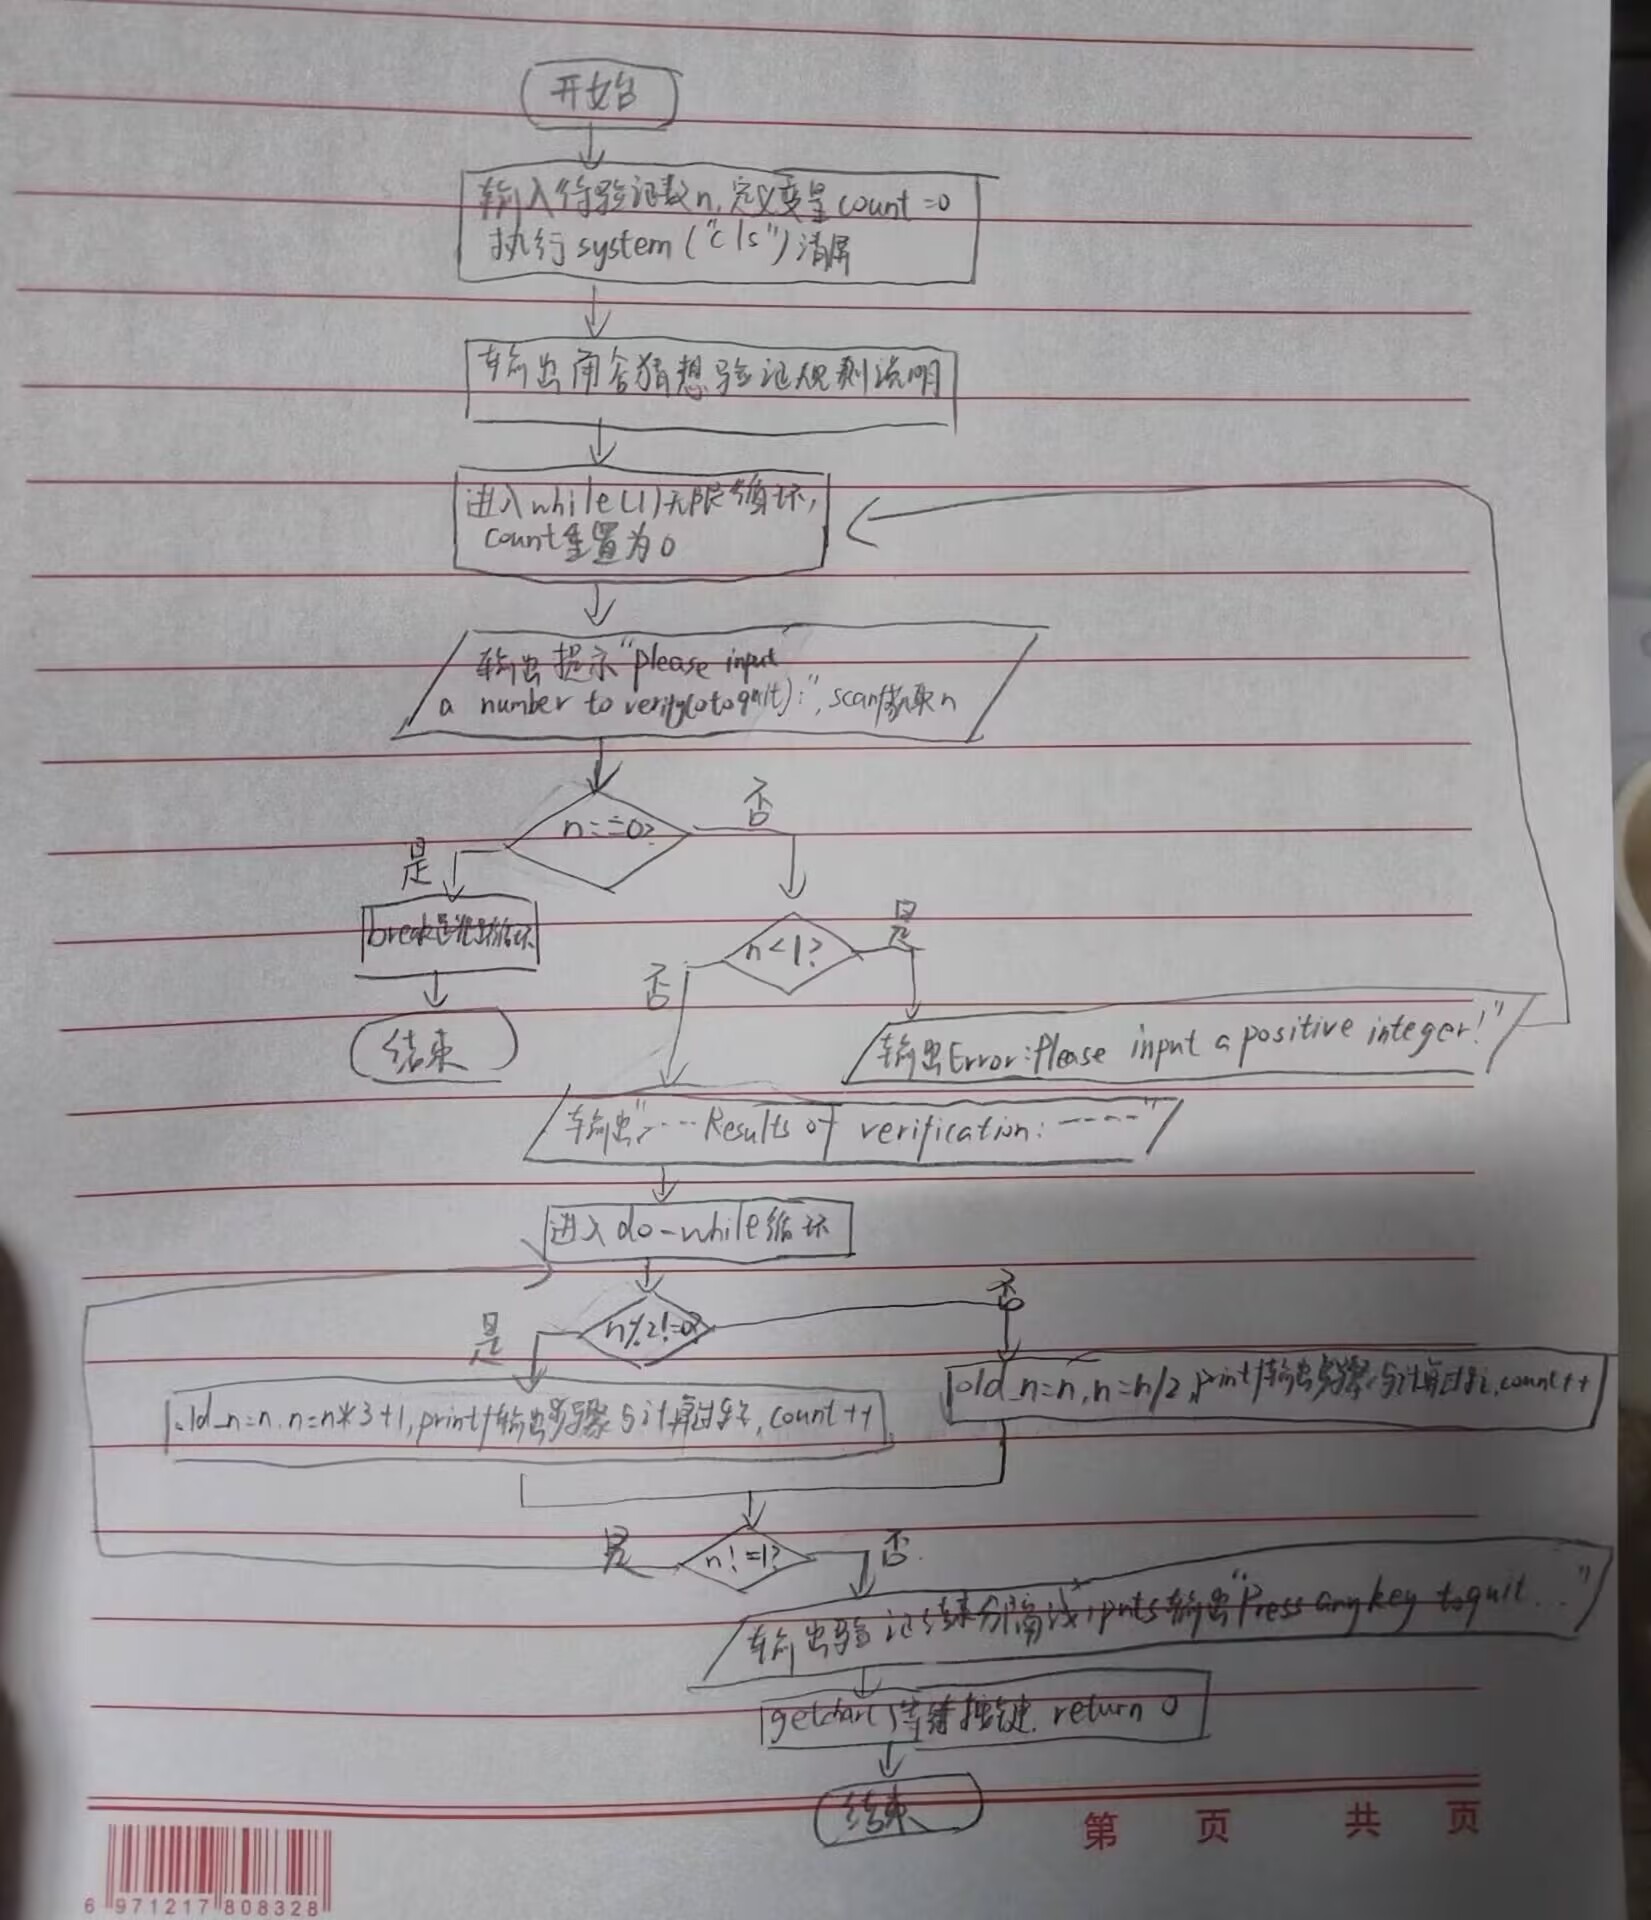 开始
输入待验证数n,定义变量count=0
执行system("cls")清屏
输出角谷猜想验证规则说明
进入while(1)无限循环,
count重置为0
输出提示"please input
a number to verify(0 to quit):",scanf读取n
n==0?
否
是
break退出循环
n<1?
是
否
结束
输出Error:Please input a positive integer!"
输出"----Results of verification:-----"
进入do-while循环
n%2!=0?
否
是
old_n=n,n=n/2,printf输出步骤与计算过程,count++
old_n=n,n=n*3+1,printf输出步骤与计算过程,count++
n!=1?
是
否
输出验证结束分隔线,puts输出"Press any key to quit..."
getchar()等待按键,return 0
结束
第 页 共 页
6 971217 808328